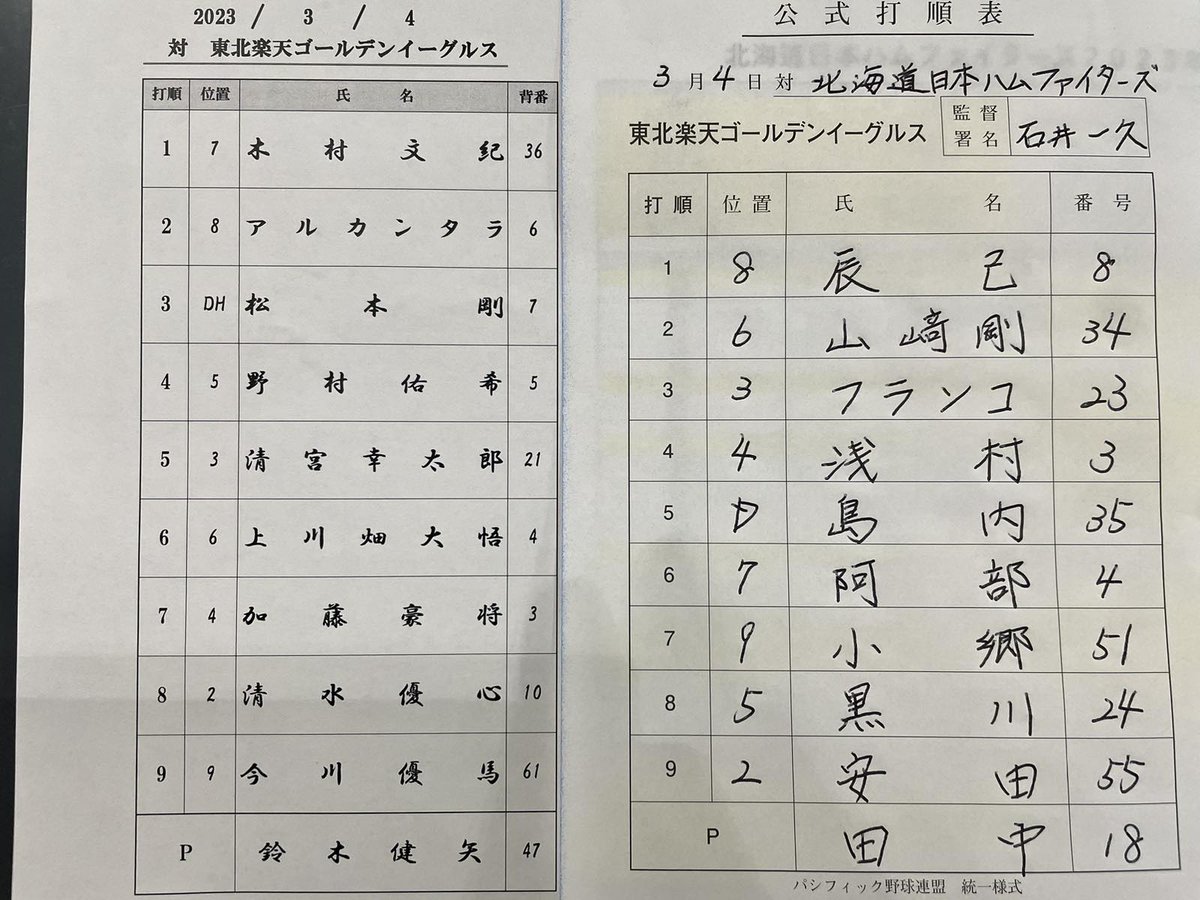 2023 / 3 / 4
対 東北楽天ゴールデンイーグルス
打順 位置 氏 名 背番
1 7 木村文紀 36
2 8 アルカンタラ 6
3 DH 松本剛 7
4 5 野村佑希 5
5 3 清宮幸太郎 21
6 6 上川畑大悟 4
7 4 加藤豪将 3
8 2 清水優心 10
9 9 今川優馬 61
P 鈴木健矢 47
公式打順表
3月4日 対 北海道日本ハムファイターズ
東北楽天ゴールデンイーグルス 監督署名 石井一久
打順 位置 氏 名 番号
1 8 辰己 8
2 6 山﨑剛 34
3 3 フランコ 23
4 4 浅村 3
5 D 島内 35
6 7 阿部 4
7 9 小郷 51
8 5 黒川 24
9 2 安田 55
P 田中 18
パシフィック野球連盟 統一様式